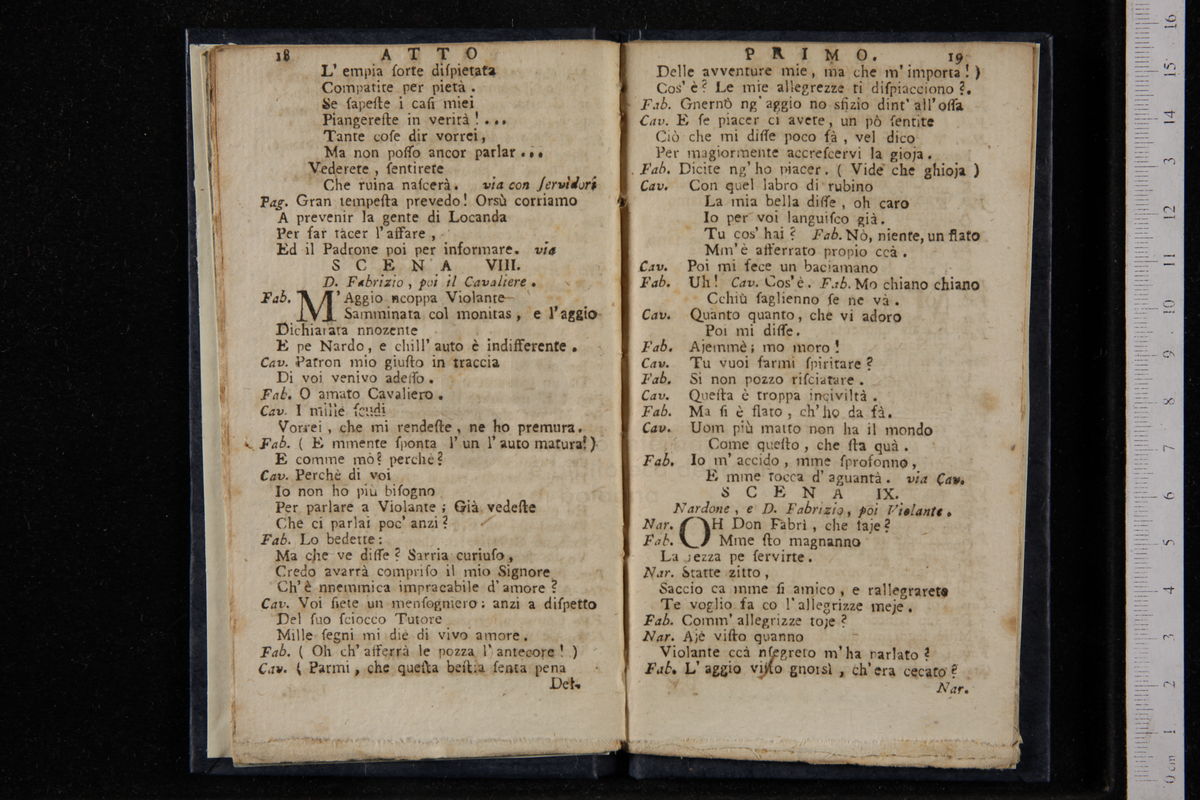 18 ATTO
L' empia ſorte diſpietata
Compatite per pietà.
Se ſapeſte i caſi miei
Piangereſte in verità! ...
Tante coſe dir vorrei,
Ma non poſſo ancor parlar ...
Vederete, ſentirete
Che ruina naſcerà. via con ſervidori
Pag. Gran tempeſta prevedo! Orsù corriamo
A prevenir la gente di Locanda
Per far tacer l'affare,
Ed il Padrone poi per informare. via
SCENA VIII.
D. Fabrizio, poi il Cavaliere.
Fab. M'Aggio ncoppa Violante
Samminata col monitas, e l'aggio
Dichiarata nnozente
E pe Nardo, e chill' auto è indifferente.
Cav. Patron mio giuſto in traccia
Di voi venivo adeſſo.
Fab. O amato Cavaliero.
Cav. I mille ſcudi
Vorrei, che mi rendeſte, ne ho premura.
Fab. (E mmente ſponta l'un l'auto matura!)
E comme mò? perchè?
Cav. Perchè di voi
Io non ho più biſogno
Per parlare a Violante; Già vedeſte
Che ci parlai poc' anzi?
Fab. Lo bedette:
Ma che ve diſſe? Sarria curiuſo,
Credo avarrà compriſo il mio Signore
Ch'è nnemmica impracabile d'amore?
Cav. Voi ſiete un menſogniero: anzi a diſpetto
Del ſuo ſciocco Tutore
Mille ſegni mi diè di vivo amore.
Fab. (Oh ch'afferrà le pozza l'antecore!)
Cav. (Parmi, che queſta beſtia ſenta pena
Del-
PRIMO. 19
Delle avventure mie, ma che m'importa!)
Cos'è? Le mie allegrezze ti diſpiacciono?.
Fab. Gnernò ng'aggio no sfizio dint'all'oſſa
Cav. E ſe piacer ci avete, un pò ſentite
Ciò che mi diſſe poco fà, vel dico
Per magiormente accreſcervi la gioja.
Fab. Dicite ng'ho piacer. (Vide che ghioja)
Cav. Con quel labro di rubino
La mia bella diſſe, oh caro
Io per voi languiſco già.
Tu cos'hai? Fab. Nò, niente, un flato
Mm'è afferrato propio ccà.
Cav. Poi mi fece un baciamano
Fab. Uh! Cav. Cos'è. Fab. Mo chiano chiano
Cchiù ſaglienno ſe ne và.
Cav. Quanto quanto, che vi adoro
Poi mi diſſe.
Fab. Ajemmè; mo moro!
Cav. Tu vuoi farmi ſpiritare?
Fab. Si non pozzo riſciatare.
Cav. Queſta è troppa inciviltà.
Fab. Ma ſi è flato, ch'ho da fà.
Cav. Uom più matto non ha il mondo
Come queſto, che ſta quà.
Fab. Io m'accido, mme ſprofonno,
E mme tocca d'aguantà. via Cav.
SCENA IX.
Nardone, e D. Fabrizio, poi Violante.
Nar. OH Don Fabrì, che faje?
Fab. Mme ſto magnanno
La jezza pe ſervirte.
Nar. Statte zitto,
Saccio ca mme ſi amico, e rallegrarete
Te voglio fa co l'allegrizze meje.
Fab. Comm' allegrizze toje?
Nar. Ajè viſto quanno
Violante ccà nſegreto m'ha parlato?
Fab. L'aggio viſto gnorsì, ch'era cecato?
Nar.